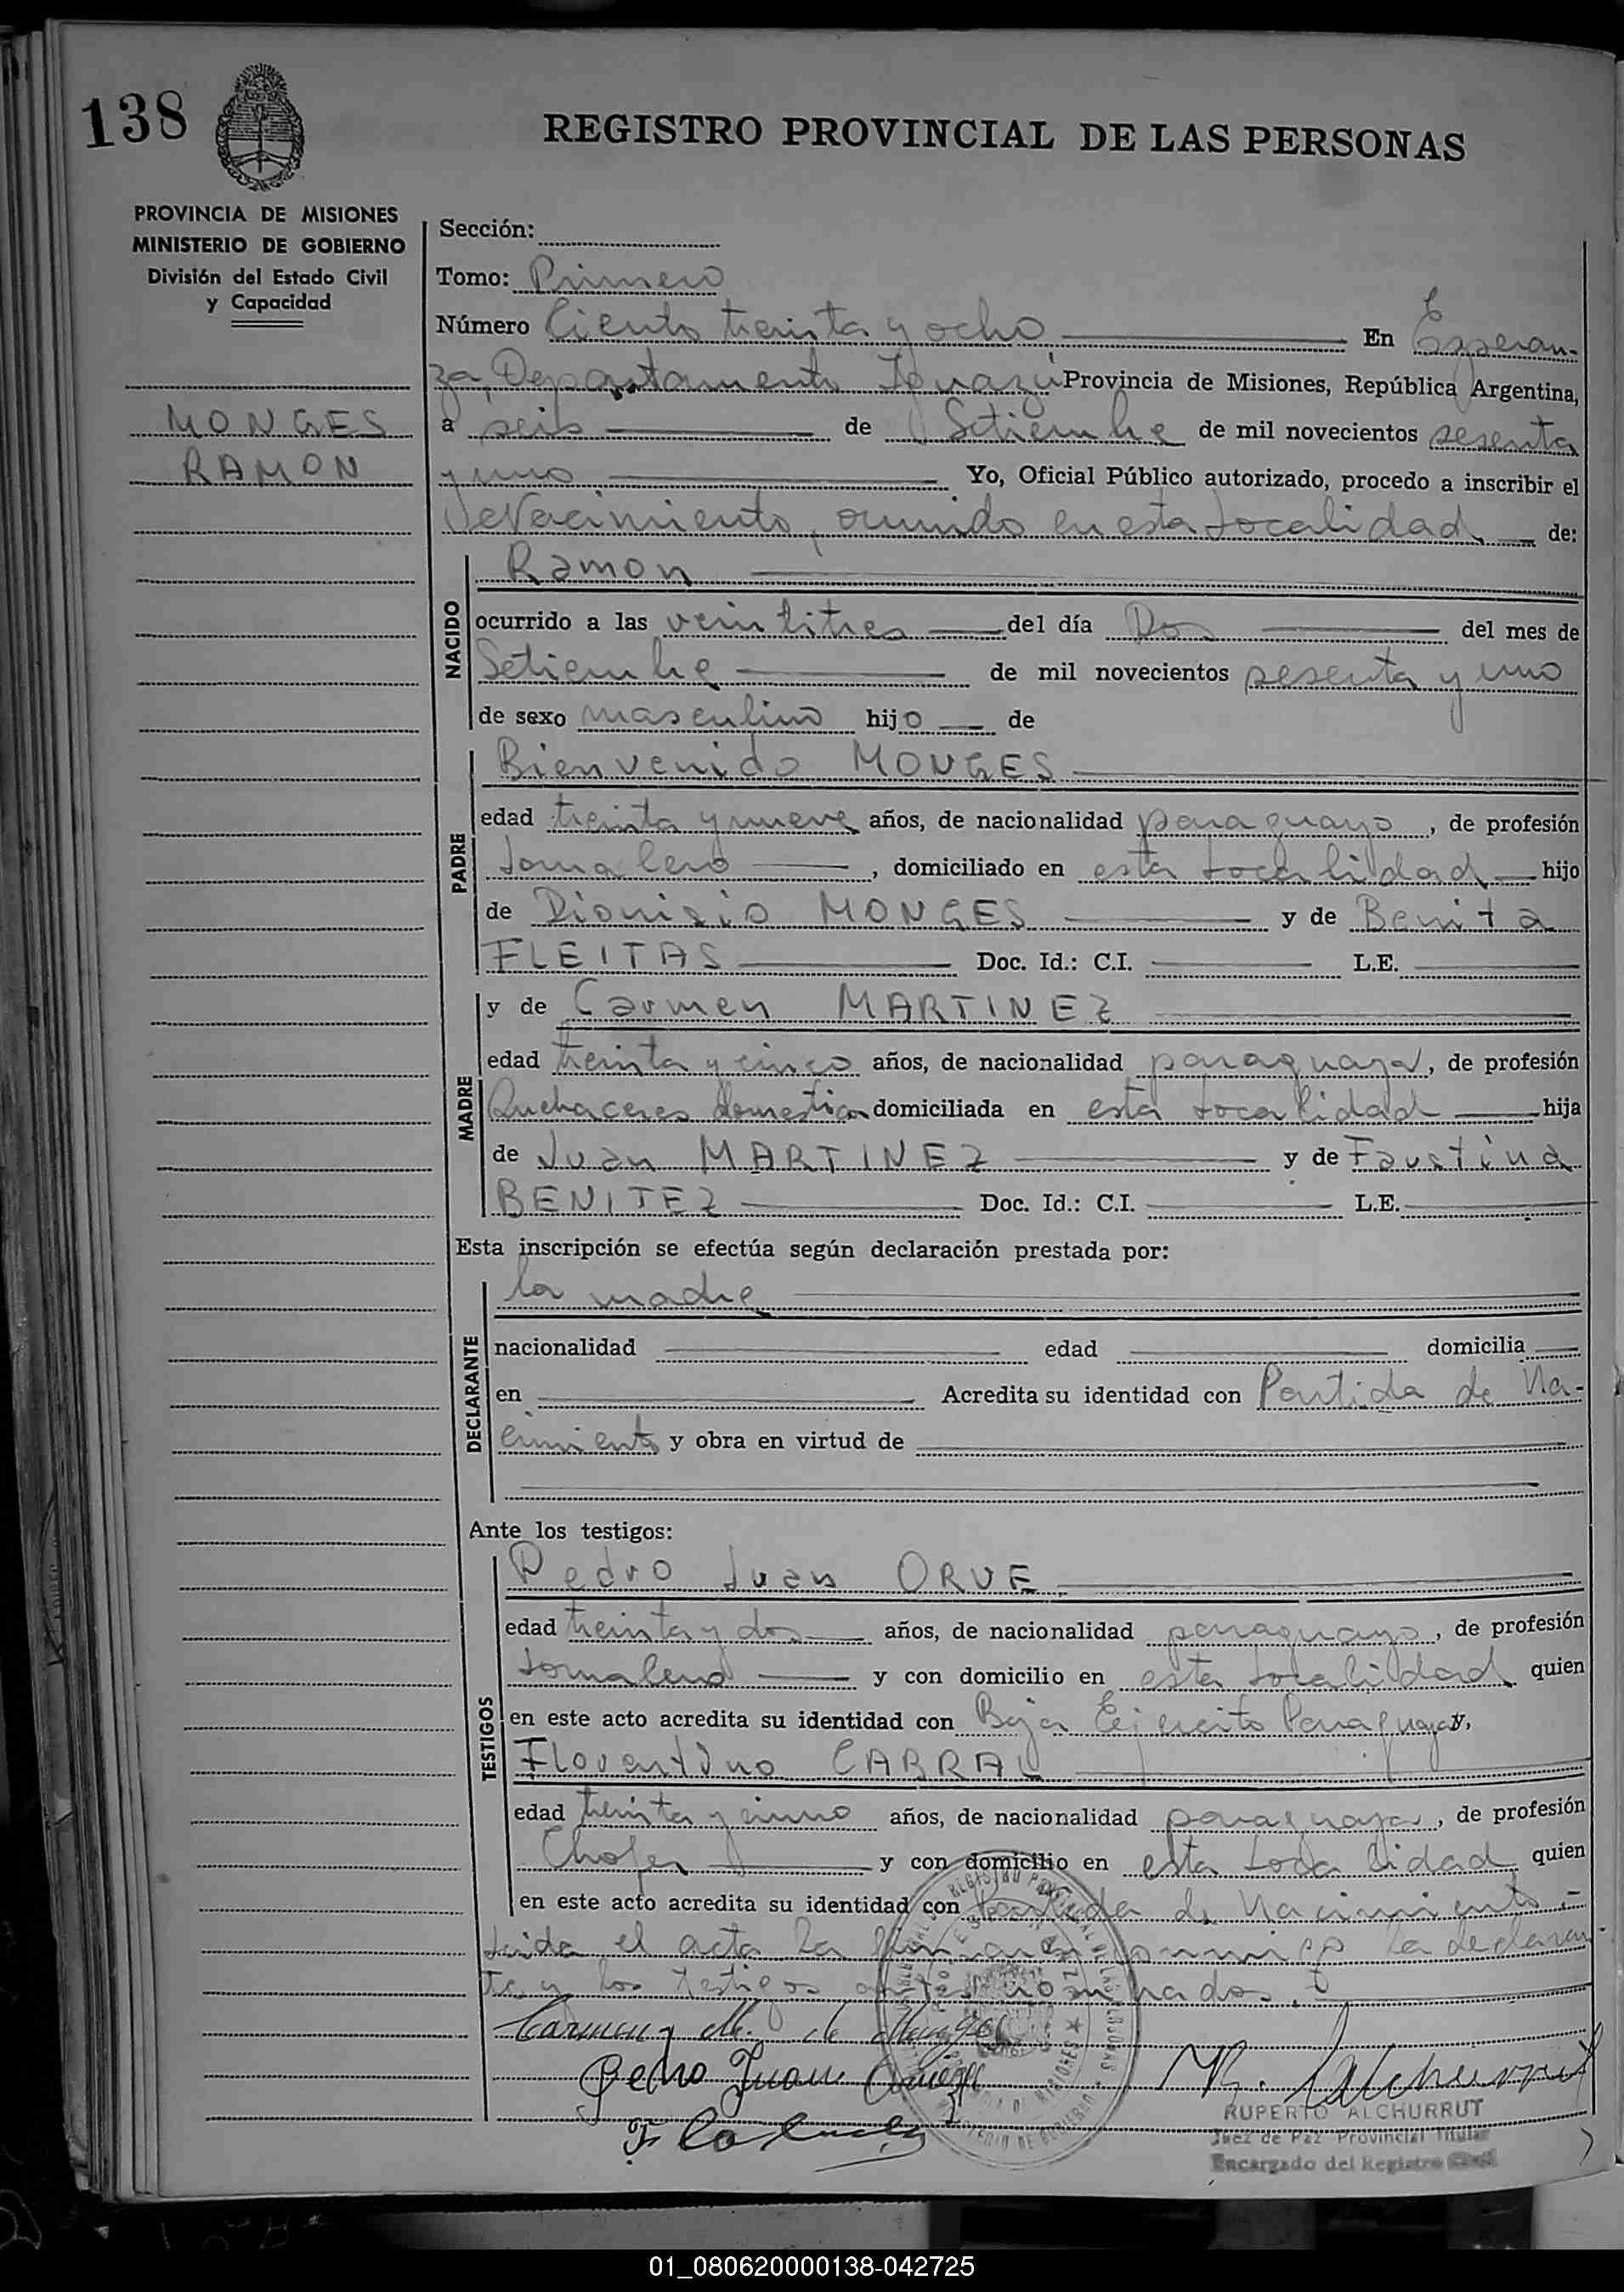 138
REGISTRO PROVINCIAL DE LAS PERSONAS
PROVINCIA DE MISIONES
MINISTERIO DE GOBIERNO
División del Estado Civil
y Capacidad
MONGES
RAMON
Sección:
Tomo: Primero
Número Ciento treinta y ocho En Esperan-
za, Departamento Iguazú Provincia de Misiones, República Argentina,
a seis de Setiembre de mil novecientos sesenta
y uno Yo, Oficial Público autorizado, procedo a inscribir el
Nacimiento, ocurrido en esta localidad de:
NACIDO
Ramon
ocurrido a las veintitres del día Dos del mes de
Setiembre de mil novecientos sesenta y uno
de sexo masculino hijo de
PADRE
Bienvenido MONGES
edad treinta y nueve años, de nacionalidad paraguayo, de profesión
Jornalero, domiciliado en esta localidad hijo
de Dionisio MONGES y de Benita
FLEITAS Doc. Id.: C.I. L.E.
MADRE
y de Carmen MARTINEZ
edad treinta y cinco años, de nacionalidad paraguaya, de profesión
Quehaceres domestico domiciliada en esta localidad hija
de Juan MARTINEZ y de Faustina
BENITEZ Doc. Id.: C.I. L.E.
Esta inscripción se efectúa según declaración prestada por:
DECLARANTE
la madre
nacionalidad edad domicilia
en Acredita su identidad con Partida de Na-
cimiento y obra en virtud de
Ante los testigos:
TESTIGOS
Pedro Juan ORUE
edad treinta y dos años, de nacionalidad paraguayo, de profesión
Jornalero y con domicilio en esta localidad quien
en este acto acredita su identidad con Baja Ejercito Paraguayo y,
Florentino CABRAL
edad treinta y años, de nacionalidad paraguaya, de profesión
Chofer y con domicilio en esta localidad quien
en este acto acredita su identidad con Partida de Nacimiento.-
Leida el acta la firman conmigo la declaran-
te y los testigos antes nombrados.
Carmen M. de Monges
Pedro Juan
RUPERTO ALCHURRUT
Juez de Paz Provincial Titular
Encargado del Registro Civil
01_080620000138-042725